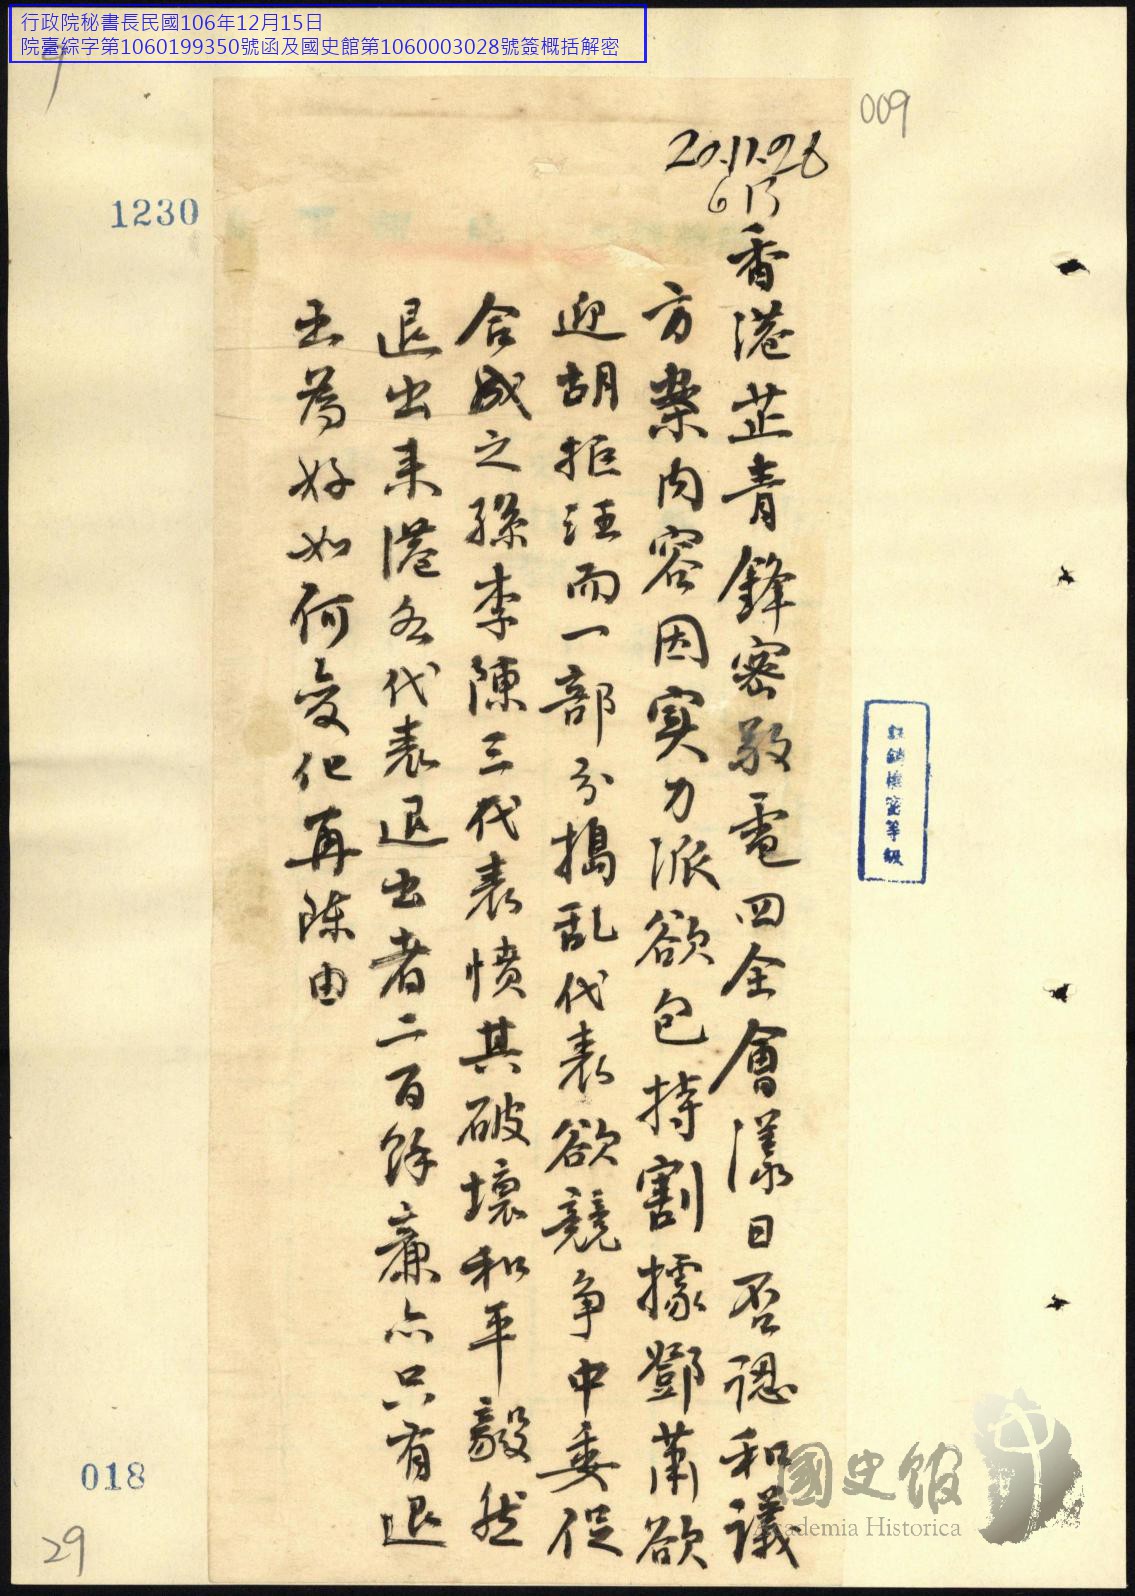 行政院秘書長民國106年12月15日
院臺綜字第1060199350號函及國史館第1060003028號簽概括解密
009
20.11.26
613
1230
香港芷青鋒密敬電四全會漾日否認和議
方案內容因实力派欲包持割據鄧蕭欲
迎胡拒汪而一部分搗乱代表欲競爭中委促
合成之孫李陳三代表憤其破壞和平毅然
退出来港各代表退出者二百餘廉亦只有退
出為好如何变化再陳由
註銷機密等級
國史館
Academia Historica
018
29